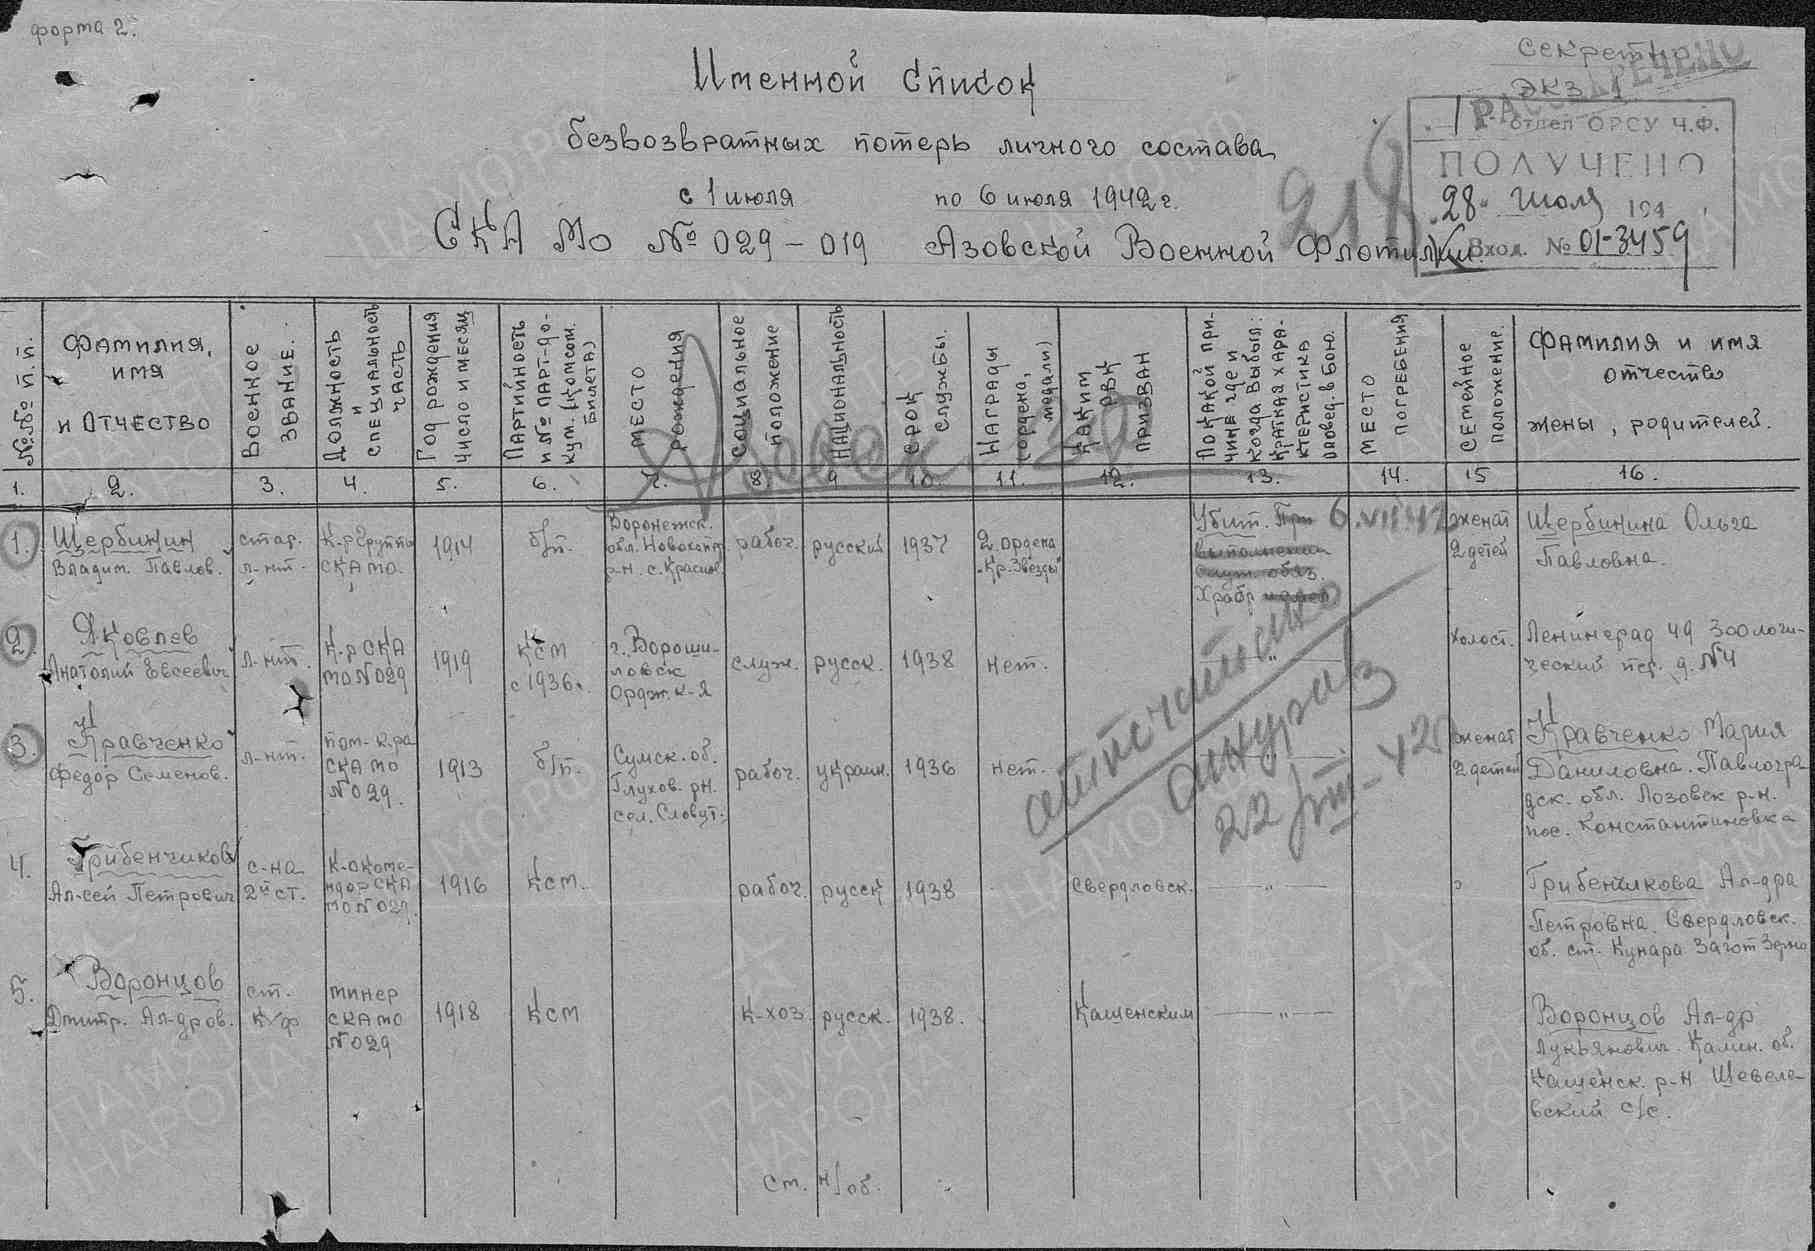 форма 2.
Секретно
РАССЕКРЕЧЕНО
Экз 1
Именной Список
безвозвратных потерь личного состава
с 1 июля по 6 июля 1942 г.
СКА МО № 029 - 019 Азовской Военной Флотилии.
отдел ОРСУ Ч.Ф.
ПОЛУЧЕНО
"28" июля 194
Вход. № 01-3459
№№ п.п.
Фамилия, имя и отчество
Военное звание.
Должность и специальность часть
Год рождения число и месяц
Партийность и № парт-докум. (комсом. билета)
Место рождения
Социальное положение
Национальность
Срок службы.
Награды (ордена, медали)
Каким РВК призван
По какой причине где и когда выбыл: краткая характеристика повед. в бою.
Место погребения
Семейное положение.
Фамилия и имя отчество жены, родителей.
1. 2. 3. 4. 5. 6. 7. 8 9 10. 11. 12. 13. 14. 15 16.
1. Щербинин Владим. Павлов. стар. л-нт. К-р группы СКА МО. 1914 б/п. Воронежск. обл. Новохопер р-н. с. Красное рабоч. русский 1937 2 ордена "Кр. Звезды" Убит. При 6.VII.42 выполнении служ. обяз. Храбр женат 2 детей Щербинина Ольга Павловна.
2. Яковлев Анатолий Евсеевич л-нт. К-р СКА МО № 029 1919 КСМ с 1936 г. г. Ворошиловск Ордж. к-я служ. русск. 1938 нет. — " — холост. Ленинград 49 Зоологический пер. д. № 4
3. Кравченко Федор Семенов. л-нт. пом. к-ра СКА МО № 029. 1913 б/п. Сумск. об. Глухов. р-н. сел. Словут. рабоч. украин. 1936 нет. женат 2 детей Кравченко Мария Даниловна. Павлоградск. обл. Лозовск р-н. пос. Константиновка
4. Грибенчиков Ал-сей Петрович с-на 2й ст. К-р комендор СКА МО № 029. 1916 КСМ. рабоч. русск 1938 Свердловск. — " — ? Грибенчикова Ал-дра Петровна. Свердловск. об. ст. Кунара Загот Зерно
5. Воронцов Дмитр. Ал-дров. ст. к/ф минер СКА МО № 029 1918 КСМ к-хоз. русск. 1938. Кащенским — " — Воронцов Ал-др Лукьянович. Камен. об. Кащенск. р-н Шевелевский с/с.
22
ст. н/об.
ЦАМО РФ
ПАМЯТЬ НАРОДА